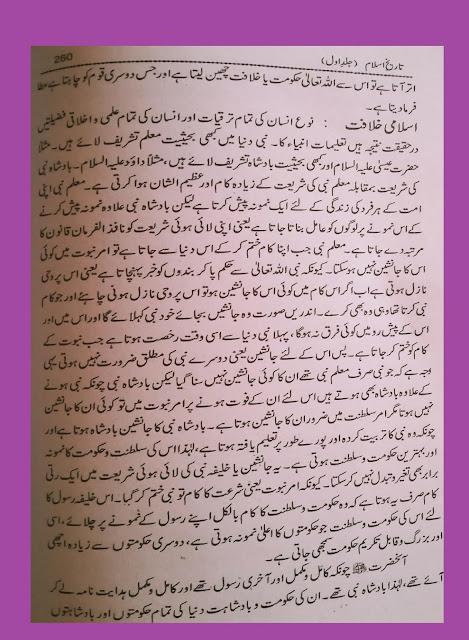 تاریخ اسلام (جلد اول) 260
اتر آتا ہے تو اس سے اللہ تعالیٰ حکومت یا خلافت چھین لیتا ہے اور جس دوسری قوم کو چاہتا ہے عطا
فرما دیتا ہے۔
اسلامی خلافت : نوع انسان کی تمام ترقیات اور انسان کی تمام علمی و اخلاقی فضیلتیں
در حقیقت نتیجہ ہیں تعلیمات انبیاء کا۔ نبی دنیا میں کبھی بحیثیت معلم تشریف لائے ہیں۔ مثلاً
حضرت عیسیٰ علیہ السلام اور کبھی بحیثیت بادشاہ تشریف لائے ہیں، مثلاً داؤد علیہ السلام۔ بادشاہ نبی
کی شریعت بمقابلہ معلم نبی کی شریعت کے زیادہ کام اور عظیم الشان ہوا کرتی ہے۔ معلم نبی اپنی
امت کے ہر فرد کی زندگی کے لئے ایک نمونہ پیش کرتا ہے لیکن بادشاہ نبی علاوہ نمونہ پیش کرنے
کے اس نمونے پر لوگوں کو عامل بناتا جاتا ہے یعنی اپنی لائی ہوئی شریعت کو نافذ الفرمان قانون کا
مرتبہ دے جاتا ہے۔ معلم نبی جب اپنا کام ختم کر کے اس دنیا سے جاتا ہے تو امر نبوت میں کوئی
اس کا جانشین نہیں ہو سکتا۔ کیونکہ نبی اللہ تعالیٰ سے حکم پا کر بندوں کو خبر پہنچاتا ہے یعنی اس پر وحی
نازل ہوتی ہے اب اگر اس کام میں کوئی اس کا جانشین ہو تو اس پر وحی نازل ہونی چاہئے اور جو کام
نبی کرتا تھا وہی وہ بھی کرے۔ اندریں صورت وہ جانشین بجائے خود نبی کہلائے گا اور اس میں اور
اس کے پیش رو میں کوئی فرق نہ ہوگا، پہلا نبی دنیا سے اسی وقت رخصت ہوتا ہے جب نبوت کے
کام کو ختم کر جاتا ہے۔ پس اس کے لئے جانشین یعنی دوسرے نبی کی مطلق ضرورت نہیں ہوتی یہی
وجہ ہے کہ جو نبی صرف معلم نبی تھے ان کا کوئی جانشین نہیں سنا گیا لیکن بادشاہ نبی چونکہ نبی ہونے
کے علاوہ بادشاہ بھی ہوتے ہیں اس لئے ان کے فوت ہونے پر امر نبوت میں تو کوئی ان کا جانشین
نہیں ہوتا مگر امر سلطنت میں ضرور ان کا جانشین ہوتا ہے۔ بادشاہ نبی کا جانشین بادشاہ ہوتا ہے اور
چونکہ وہ نبی کا تربیت کردہ اور پورے طور پر تعلیم یافتہ ہوتا ہے، لہٰذا اس کی سلطنت و حکومت کا نمونہ
اور بہترین حکومت و سلطنت ہوتی ہے۔ یہ جانشین یا خلیفہ نبی کی لائی ہوئی شریعت میں ایک رتی
برابر بھی تغیر و تبدل نہیں کر سکتا۔ کیونکہ امر نبوت یعنی شرعت کا کام تو نبی ختم کر گیا۔ اس خلیفہ رسول کا
کام صرف یہ ہوتا ہے کہ وہ حکومت و سلطنت کا کام بالکل اپنے رسول کے نمونے پر چلائے، اسی
لئے اس کی حکومت و سلطنت جو حکومتوں کا اعلیٰ نمونہ ہوتی ہے، دوسری حکومتوں سے زیادہ اچھی
اور بزرگ و قابل تکریم حکومت سمجھی جاتی ہے۔
آنحضرت ﷺ چونکہ کامل و مکمل اور آخری رسول تھے اور کامل و مکمل ہدایت نامہ لے کر
آئے تھے، لہٰذا بادشاہ نبی تھے۔ ان کی حکومت و بادشاہت دنیا کی تمام حکومتوں اور بادشاہتوں